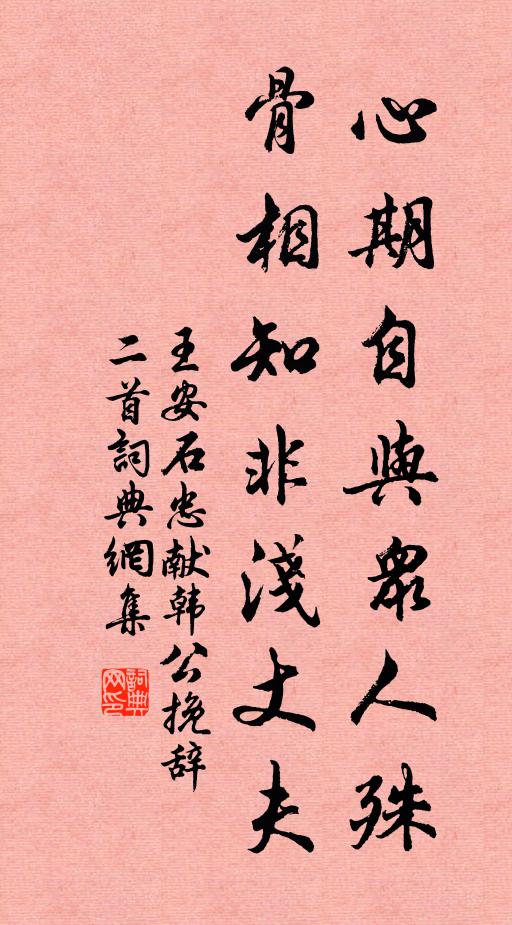 心期自與衆人殊
骨相知非淺丈夫
王安石忠献韩公挽辞
二首詞典網集
詞典网印